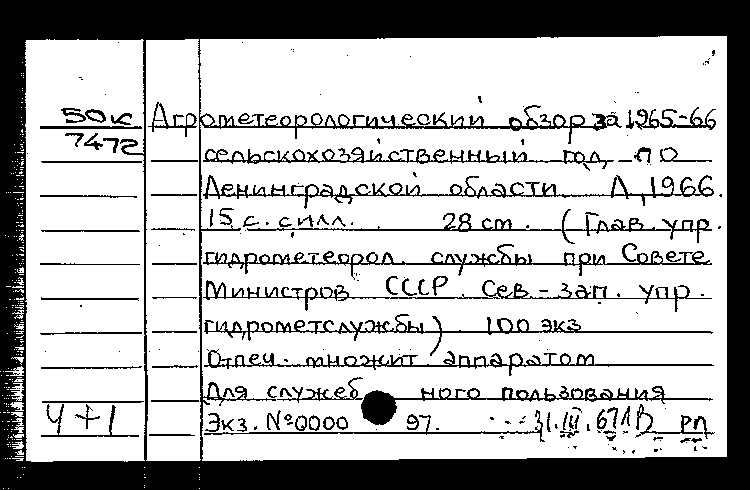 50к Агрометеорологический обзор за 1965-66
7472 сельскохозяйственный год по
Ленинградской области. Л, 1966.
15 с. с илл. 28 cm. (Глав. упр.
гидрометеорол. службы при Совете
Министров СССР. Сев-зап. упр.
гидрометслужбы) 100 экз
Отпеч. множит аппаратом
Для служеб ного пользования
4+1 Экз. №0000 97. 31. 67 РП